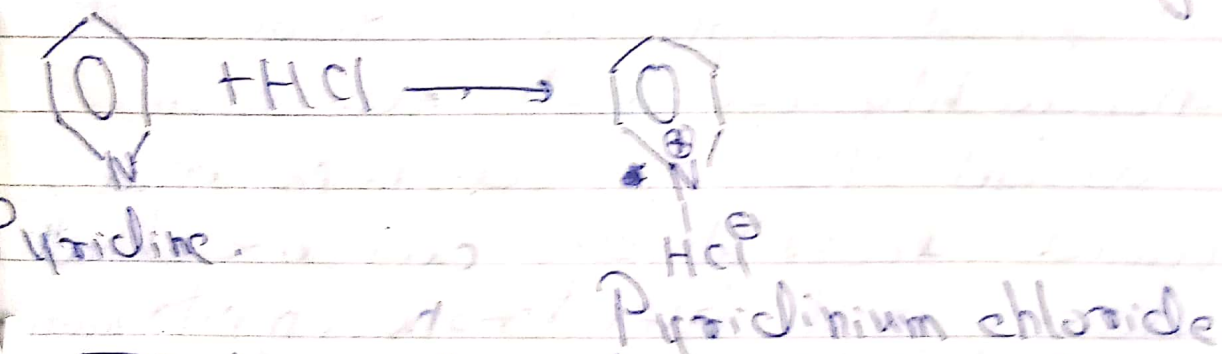 +HCl ⟶
N
⊕
N
Pyridine.
HCl⊖
Pyridinium chloride